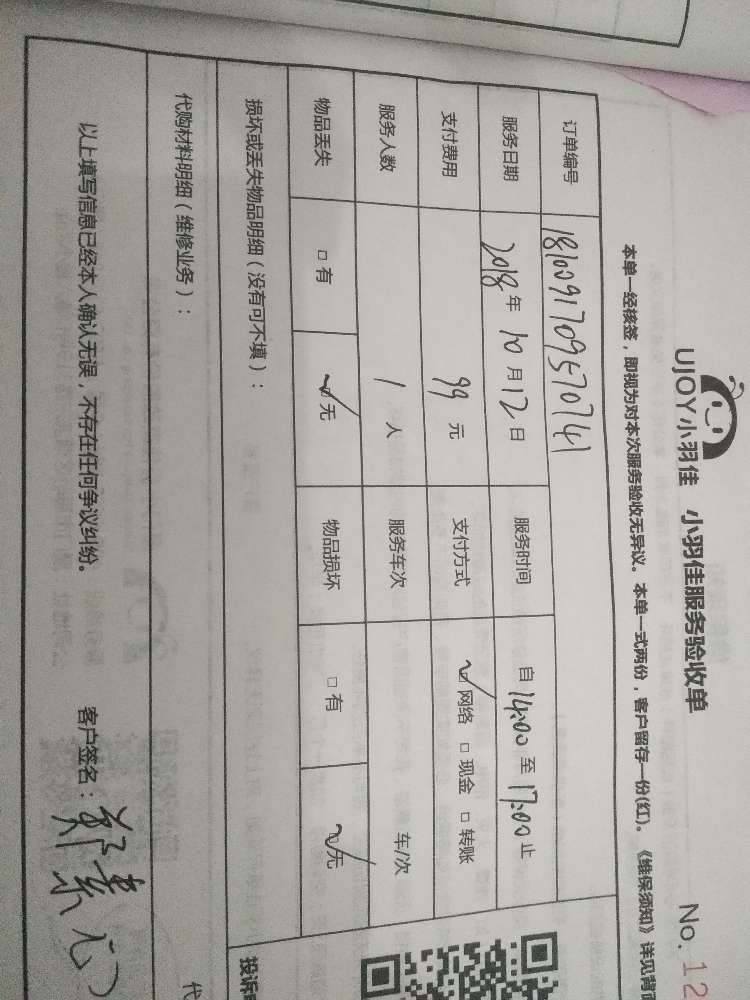 UJOY小羽佳 小羽佳服务验收单
No. 12
本单一经核签，即视为对本次服务验收无异议。本单一式两份，客户留存一份(红)。《维保须知》详见背面
订单编号 1810091709570741
服务日期 2018年10月12日 服务时间 自14:00至17:00止
支付费用 99元 支付方式 ☑网络 □现金 □转账
服务人数 1人 服务车次 车/次
物品丢失 □有 ☑无 物品损坏 □有 ☑无
损坏或丢失物品明细（没有可不填）：
代购材料明细（维修业务）：
以上填写信息已经本人确认无误，不存在任何争议纠纷。 客户签名：郑素
投诉
代